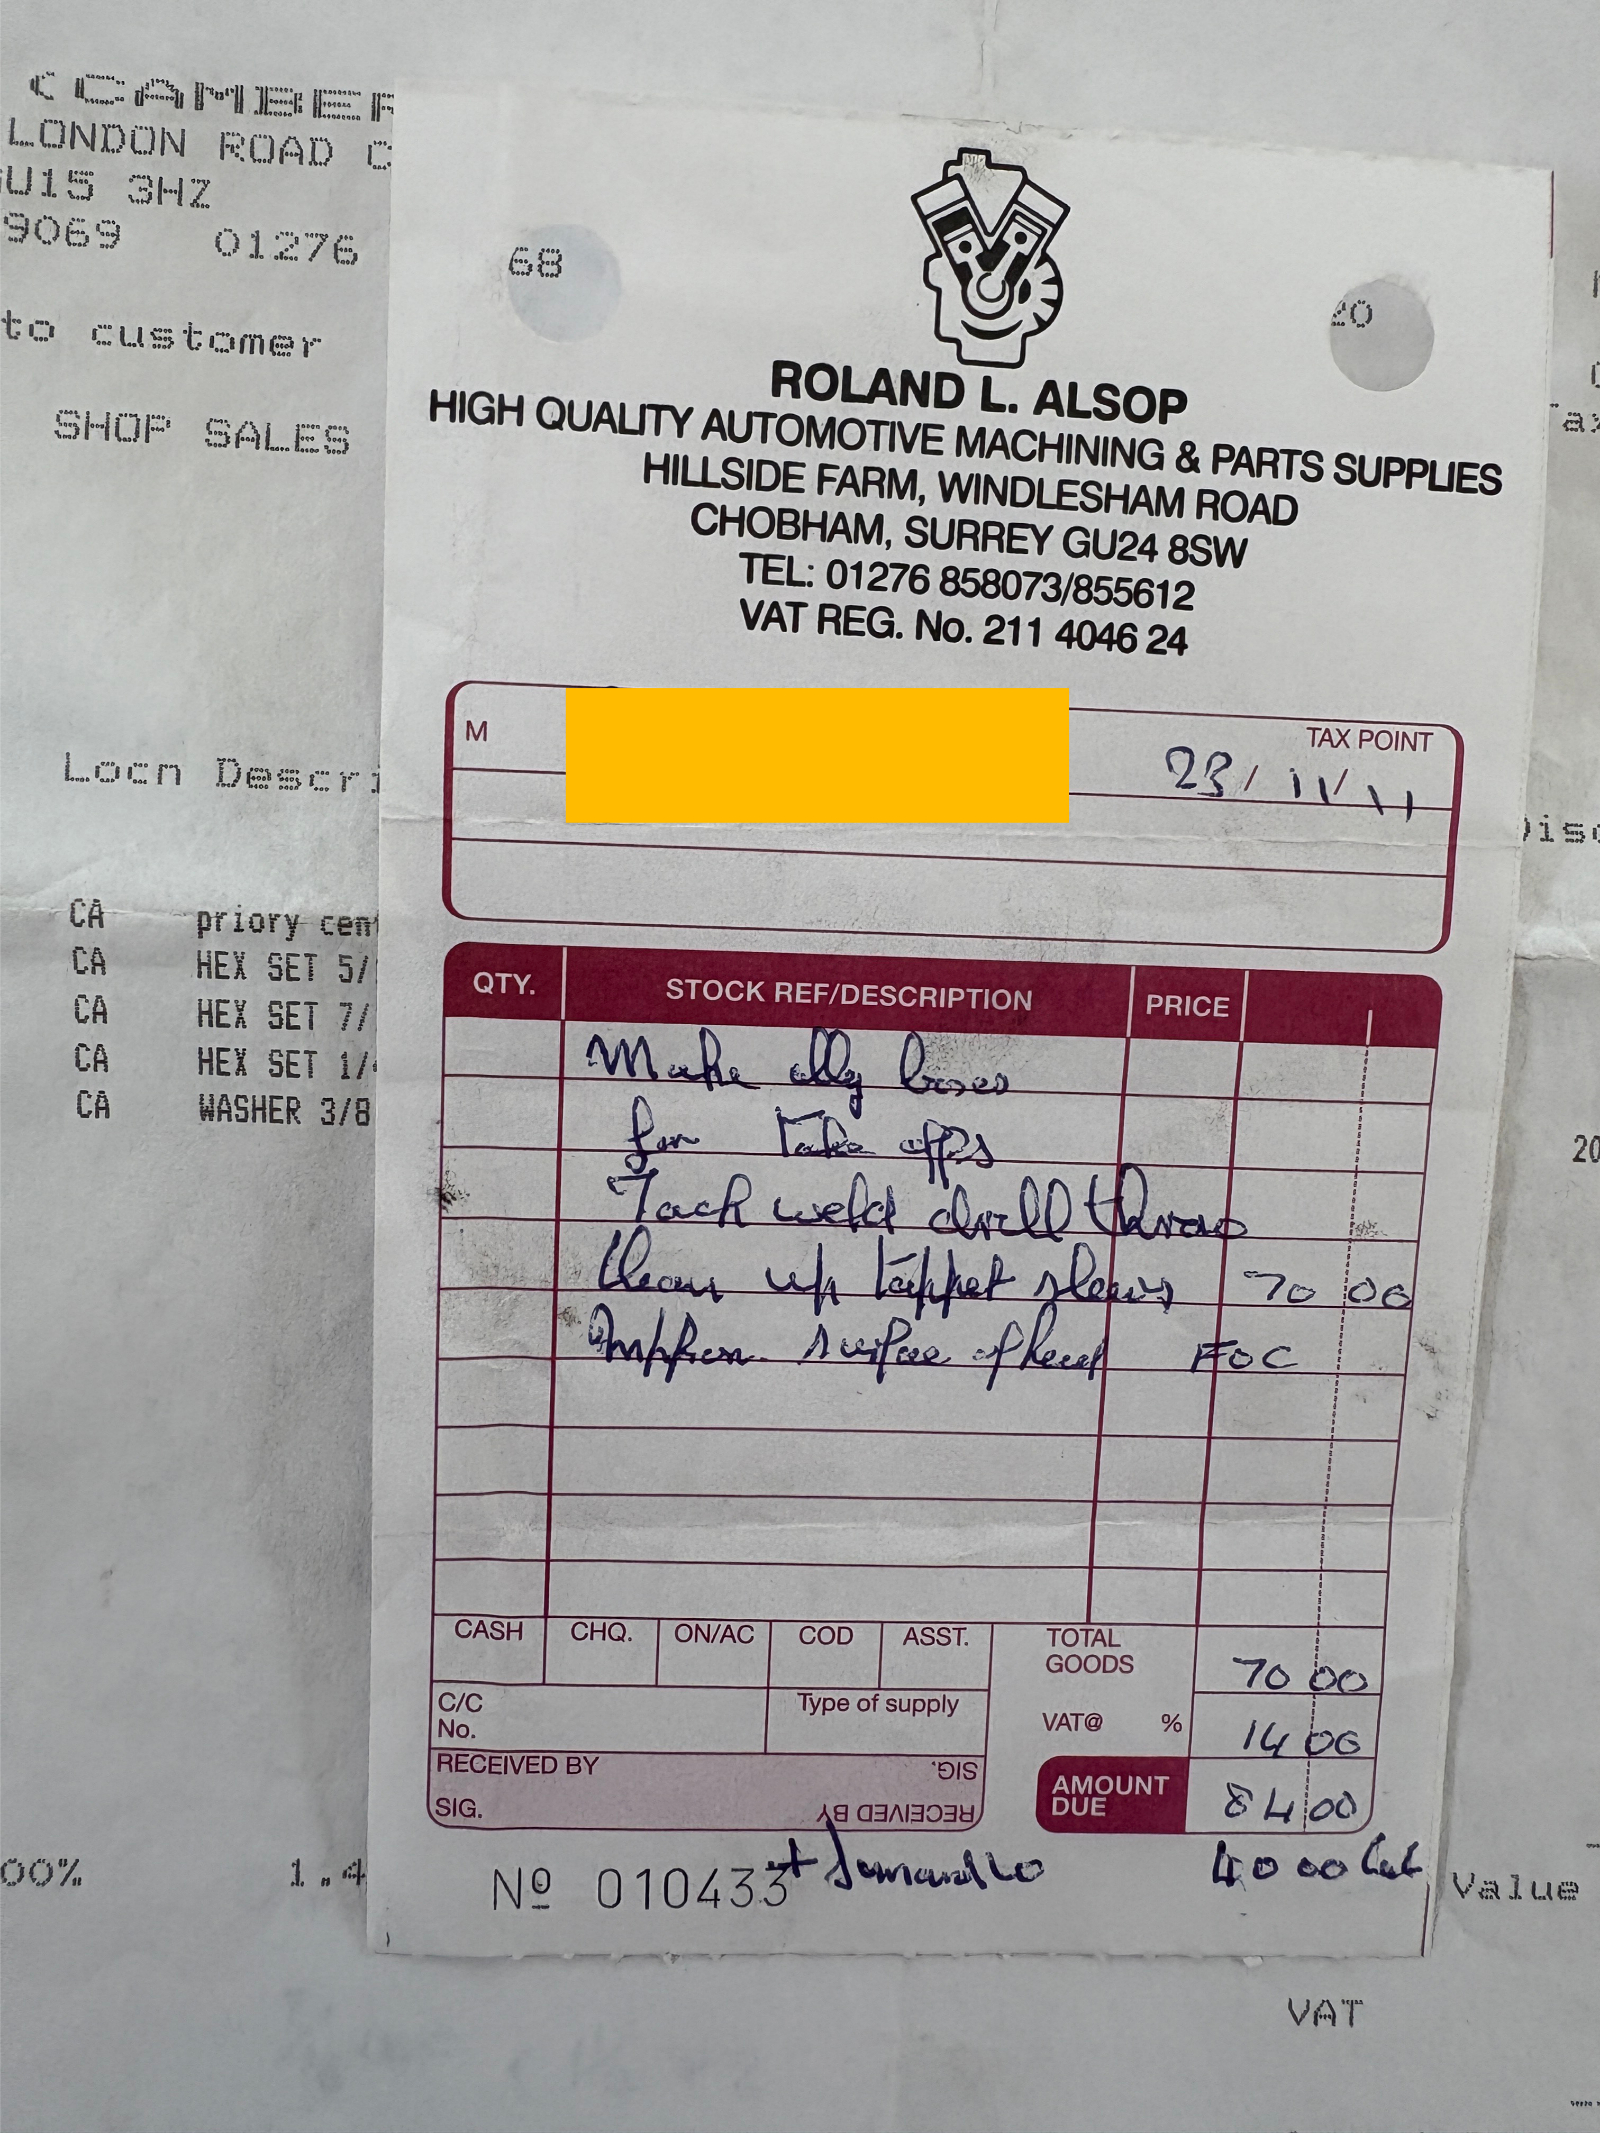 CAMBER
LONDON ROAD C
GU15 3HZ
9069 01276
68
20
to customer
SHOP SALES
Locn Descri
CA priory cent
CA HEX SET 5/
CA HEX SET 7/
CA HEX SET 1/4
CA WASHER 3/8
00% 1.4
ROLAND L. ALSOP
HIGH QUALITY AUTOMOTIVE MACHINING & PARTS SUPPLIES
HILLSIDE FARM, WINDLESHAM ROAD
CHOBHAM, SURREY GU24 8SW
TEL: 01276 858073/855612
VAT REG. No. 211 4046 24
M TAX POINT
23/11/11
QTY. STOCK REF/DESCRIPTION PRICE
Make ally boses
for Take offs
Tack weld drill throo
Clean up tappet sleevs 70 00
surface of head FOC
CASH CHQ. ON/AC COD ASST. TOTAL GOODS 70 00
C/C No. Type of supply VAT@ % 14 00
RECEIVED BY SIG.
SIG. RECEIVED BY
AMOUNT DUE 84 00
Nº 010433
40 00
Disc
20
Value
VAT